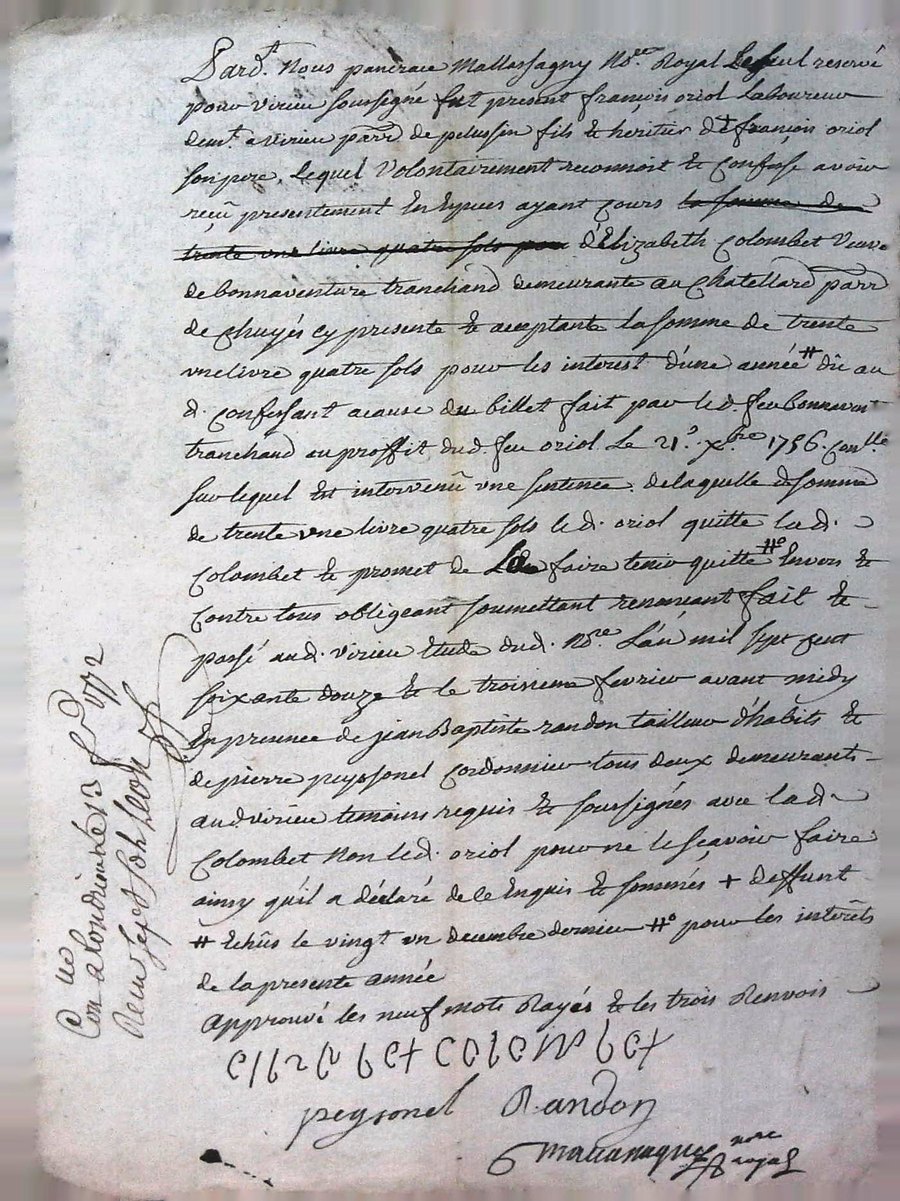 Pard.t Nous pancrace Mallassagny No.re Royal Le seul reservé
pour virieu soussigné fut present françois oriol Laboureur
dem.t a virieu parr de pelussin fils & heritier de + françois oriol
son pere, lequel Volontairement reconnoit & Confesse avoir
reçû presentement En Espèces ayant Cours la somme de
trente une livre quatre sols pour d'Elizabeth Colombet Veuve
de bonnaventure tranchand demeurante au Chatellard parr
de Chuyés cy presente & acceptante la somme de trente
une livre quatre sols pour les interest d'une année # dû au
d. Confessant acause du billet fait par led. feu bonnavent
tranchand au proffit dud. feu oriol Le 21.e x.bre 1756. Con.llé
sur lequel Est intervenû une sentence. de laquelle d. somme
de trente une livre quatre sols led. oriol quitte lad.
Colombet & promet de La faire tenir quitte #° Envers &
Contre tous obligeant soumettant renonceant fait &
passé aud. virieu Etude dud. No.re L'an mil sept cent
soixante douze & le troisieme fevrier avant midy
En presence de jean Baptiste randon tailleur d'habits &
de pierre peyssonel Cordonnier tous deux demeurants
aud. virieu temoins requis & soussignés avec lad.
Colombet Non led. oriol pour ne le scavoir faire
ainsy qu'il a déclaré de ce Enquis & sommés + deffunt
# Echûs le vingt un decembre dernier #° pour les interêts
de la presente année
Approuvé les neuf mots Rayés & les trois Renvois
Elizabet colombet
peyssonel Randon
no.re royal
Con.llé a Condrieu le 13 f.r 1772
Recu sept sols